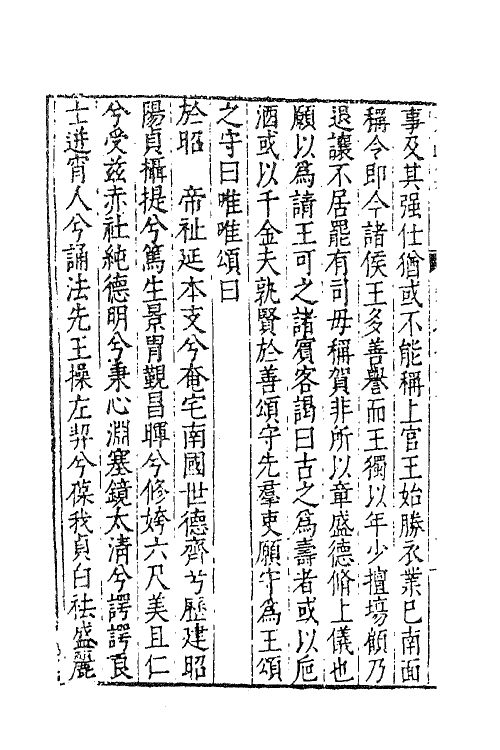 事及其强仕猶或不能稱上官王始勝衣業已南面
稱令即今諸侯王多善譽而王獨以年少擅塲顧乃
退讓不居罷有司毋稱賀非所以章盛德脩上儀也
願以爲請王可之諸賔客謁曰古之爲壽者或以巵
酒或以千金夫孰賢於善頌守先羣吏願守爲王頌
之守曰唯唯頌曰
於昭　帝祉延本支兮奄宅南國世德齊兮歷建昭
陽貞攝提兮篤生景胄覲昌暉兮修姱六尺美且仁
兮受兹赤社純德明兮秉心淵塞鏡太清兮諤諤良
士迸宵人兮誦法先王操左契兮葆我貞白祛盛麗